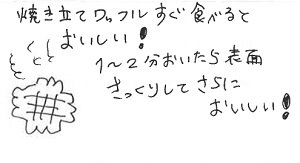 焼き立てワッフルすぐ食べると
おいしい!
1〜2分おいたら表面
さっくりしてさらに
おいしい!